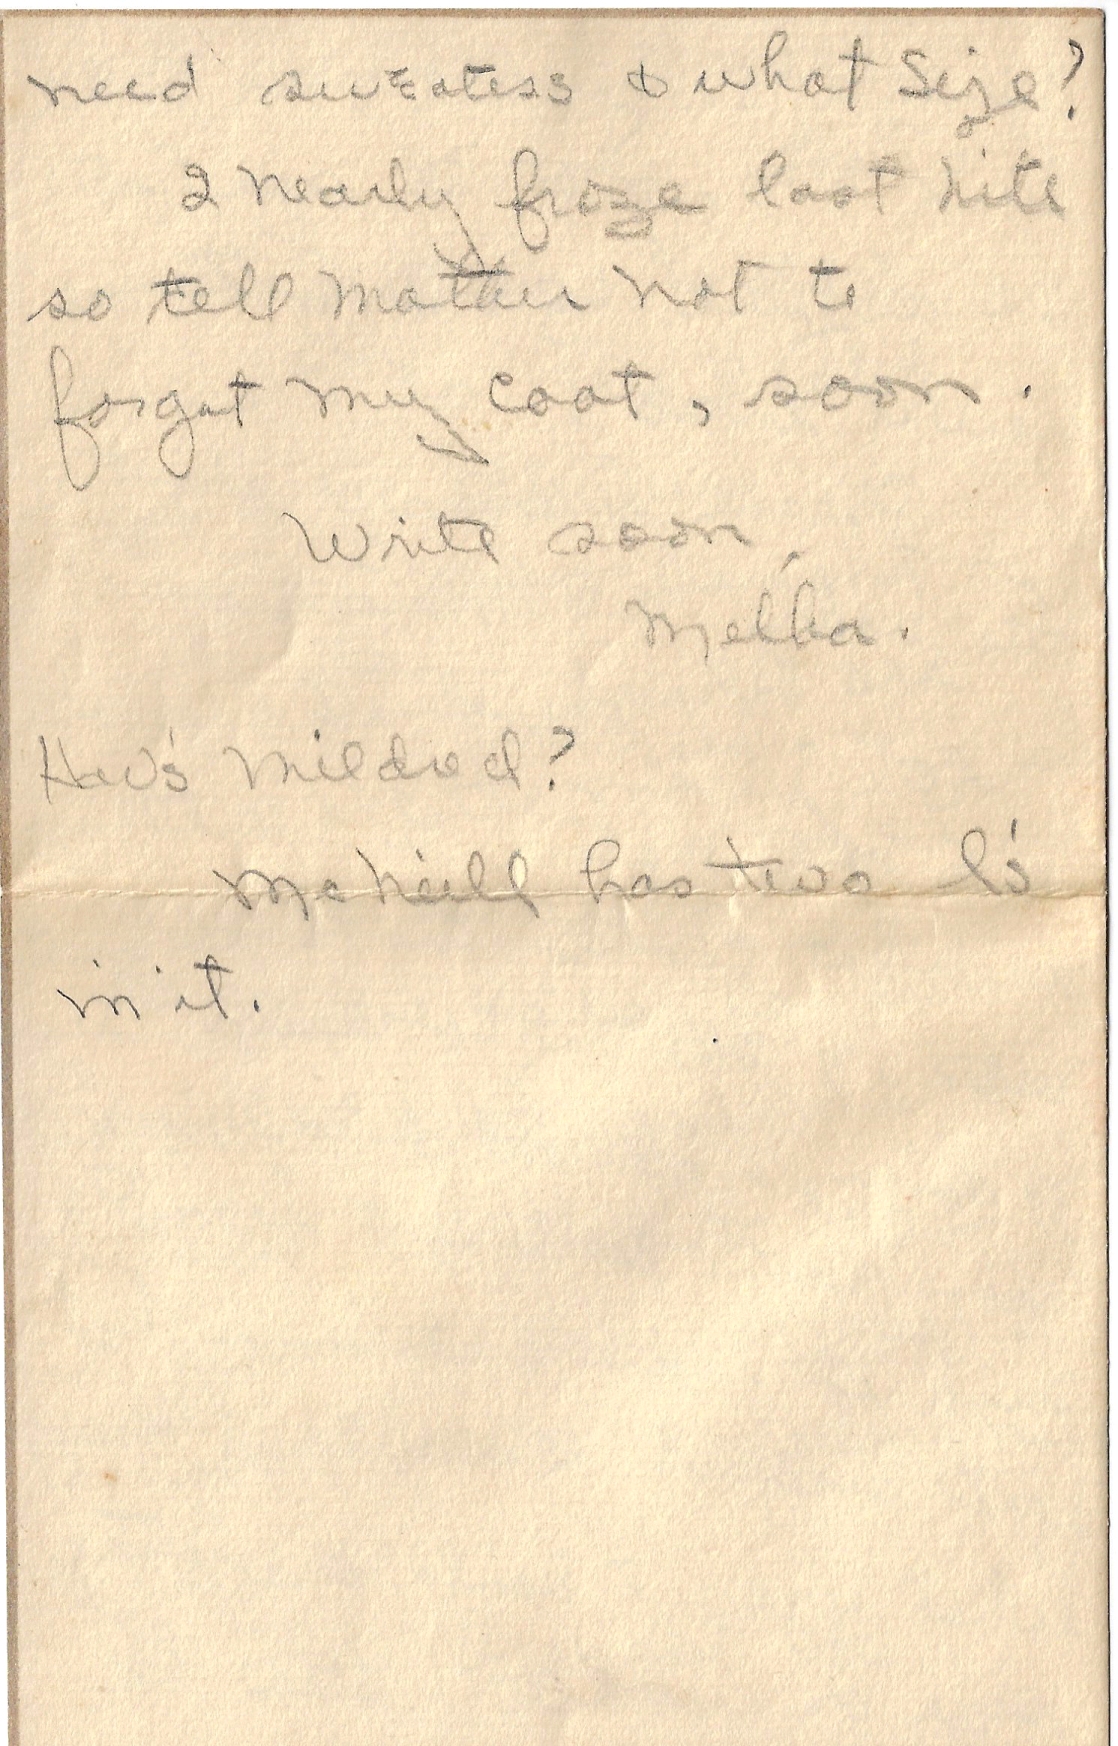 need sweaters & what size?
I nearly froze last nite
so tell mother not to
forget my coat, soon.
Write soon,
Melba.
How's Mildred?
McNeill has two l's
in it.